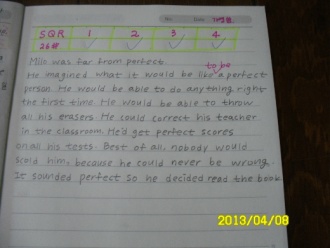 SQR 1 2 3 4
Milo was far from perfect.
to be
He imagined what it would be like a perfect
person. He would be able to do anything right
the first time. He would be able to throw
all his erasers. He could correct his teacher
in the classroom. He'd get perfect scores
on all his tests. Best of all, nobody would
scold him, because he could never be wrong.
It sounded perfect so he decided read the book.
2013/04/08